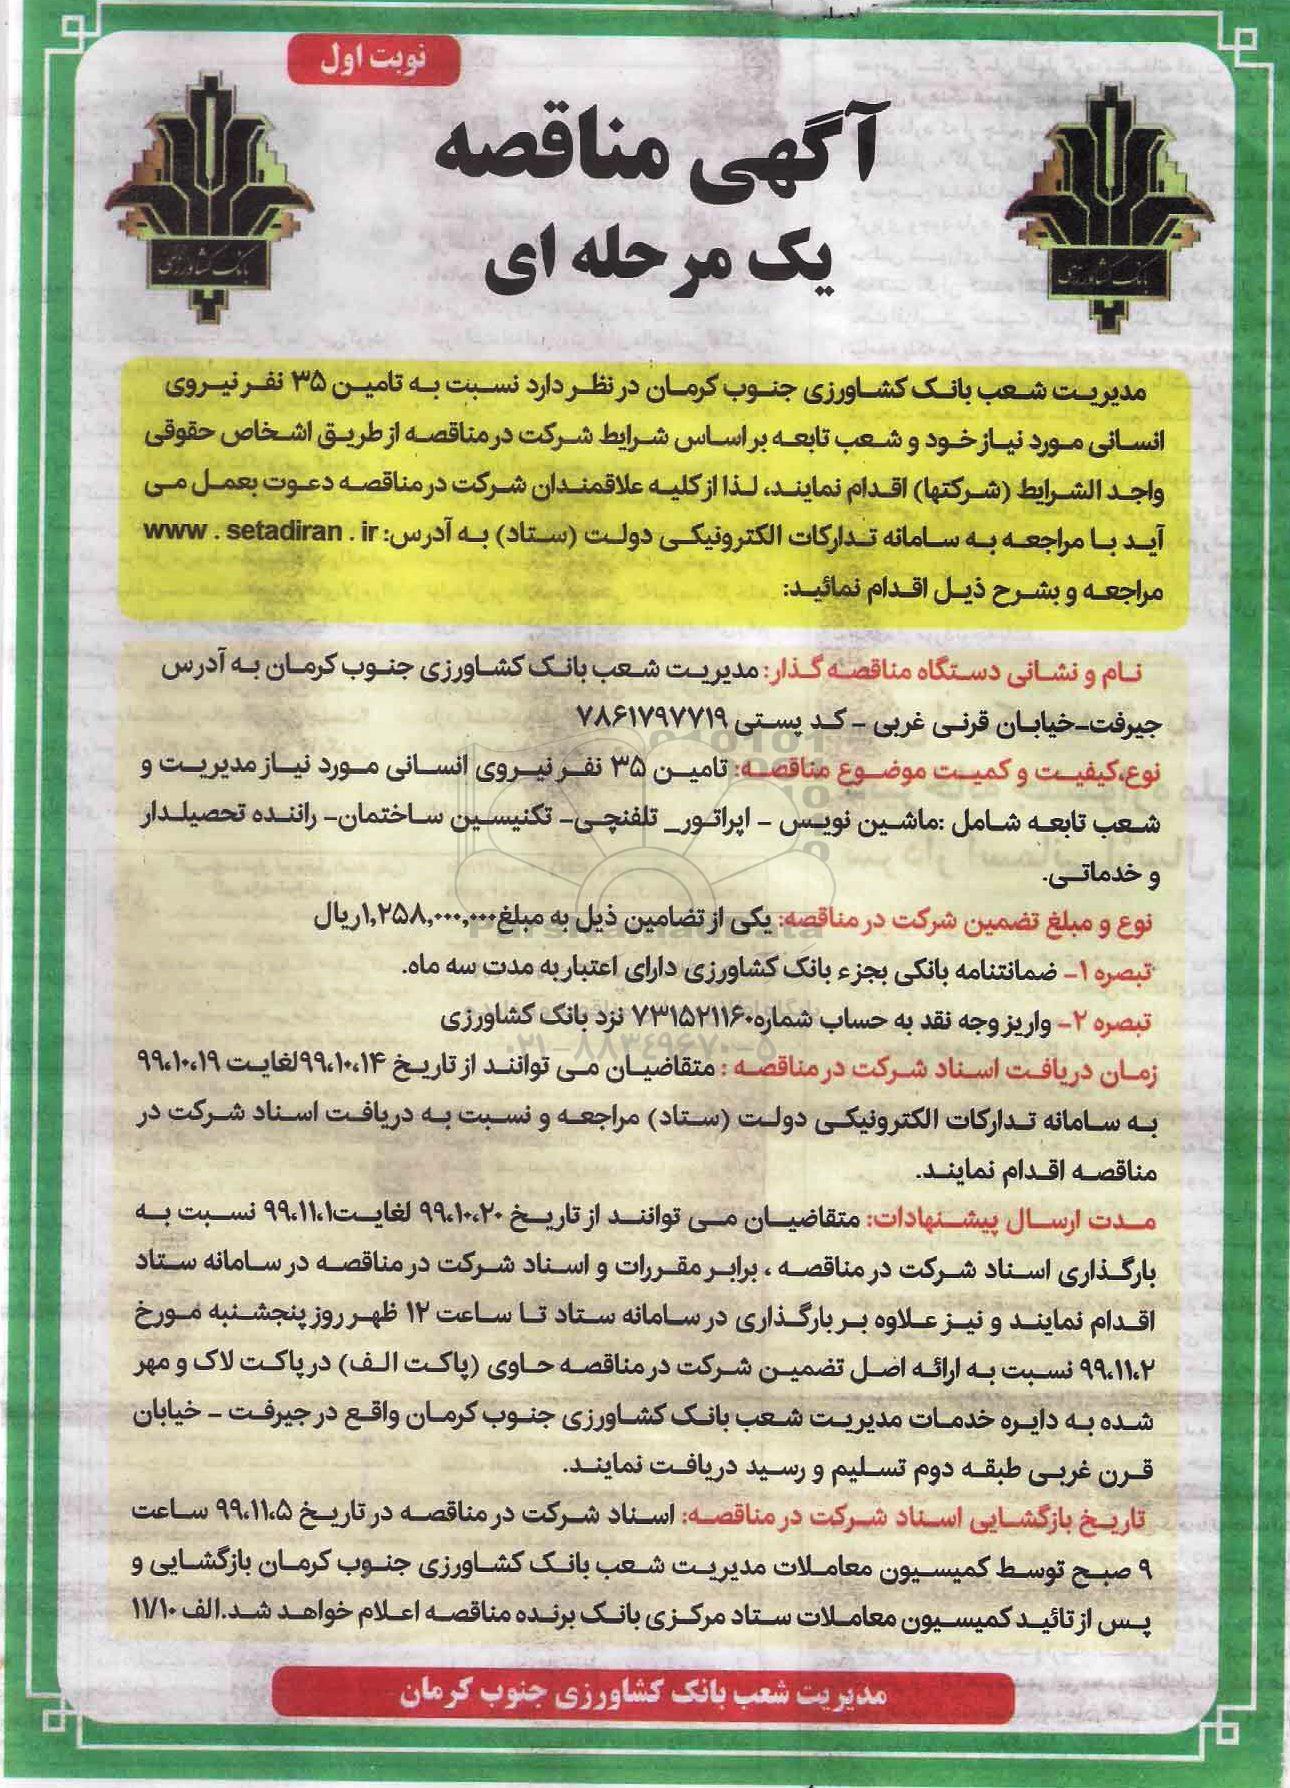 نوبت اول
آگهی مناقصه
یک مرحله ای
بانک کشاورزی
بانک کشاورزی
مدیریت شعب بانک کشاورزی جنوب کرمان در نظر دارد نسبت به تامین ۳۵ نفر نیروی
انسانی مورد نیاز خود و شعب تابعه بر اساس شرایط شرکت در مناقصه از طریق اشخاص حقوقی
واجد الشرایط (شرکتها) اقدام نمایند، لذا از کلیه علاقمندان شرکت در مناقصه دعوت بعمل می
آید با مراجعه به سامانه تدارکات الکترونیکی دولت (ستاد) به آدرس: www . setadiran . ir
مراجعه و بشرح ذیل اقدام نمائید:
نام و نشانی دستگاه مناقصه گذار: مدیریت شعب بانک کشاورزی جنوب کرمان به آدرس
جیرفت-خیابان قرنی غربی - کد پستی ۷۸۶۱۷۹۷۷۱۹
نوع،کیفیت و کمیت موضوع مناقصه: تامین ۳۵ نفر نیروی انسانی مورد نیاز مدیریت و
شعب تابعه شامل :ماشین نویس - اپراتور_ تلفنچی- تکنیسین ساختمان- راننده تحصیلدار
و خدماتی.
نوع و مبلغ تضمین شرکت در مناقصه: یکی از تضامین ذیل به مبلغ۱,۲۵۸,۰۰۰,۰۰۰ریال
تبصره ۱- ضمانتنامه بانکی بجزء بانک کشاورزی دارای اعتبار به مدت سه ماه.
تبصره ۲- واریز وجه نقد به حساب شماره۷۳۱۵۲۱۱۶۰ نزد بانک کشاورزی
۰۲۱-۸۸۳۴۹۶۷۰-۵
زمان دریافت اسناد شرکت در مناقصه : متقاضیان می توانند از تاریخ ۹۹،۱۰،۱۴لغایت ۹۹،۱۰،۱۹
به سامانه تدارکات الکترونیکی دولت (ستاد) مراجعه و نسبت به دریافت اسناد شرکت در
مناقصه اقدام نمایند.
مدت ارسال پیشنهادات: متقاضیان می توانند از تاریخ ۹۹،۱۰،۲۰ لغایت۹۹،۱۱،۱ نسبت به
بارگذاری اسناد شرکت در مناقصه ، برابر مقررات و اسناد شرکت در مناقصه در سامانه ستاد
اقدام نمایند و نیز علاوه بر بارگذاری در سامانه ستاد تا ساعت ۱۲ ظهر روز پنجشنبه مورخ
۹۹،۱۱،۲ نسبت به ارائه اصل تضمین شرکت در مناقصه حاوی (پاکت الف) در پاکت لاک و مهر
شده به دایره خدمات مدیریت شعب بانک کشاورزی جنوب کرمان واقع در جیرفت - خیابان
قرن غربی طبقه دوم تسلیم و رسید دریافت نمایند.
تاریخ بازگشایی اسناد شرکت در مناقصه: اسناد شرکت در مناقصه در تاریخ ۹۹،۱۱،۵ ساعت
۹ صبح توسط کمیسیون معاملات مدیریت شعب بانک کشاورزی جنوب کرمان بازگشایی و
پس از تائید کمیسیون معاملات ستاد مرکزی بانک برنده مناقصه اعلام خواهد شد.الف ۱۱/۱۰
مدیریت شعب بانک کشاورزی جنوب کرمان